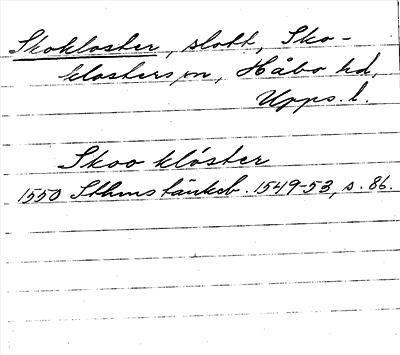 Skokloster, slott, Sko-
klosters sn, Håbo hd,
Upps. l.
Skoo klöster
1550 Sthms tänkeb. 1549-53, s. 86.